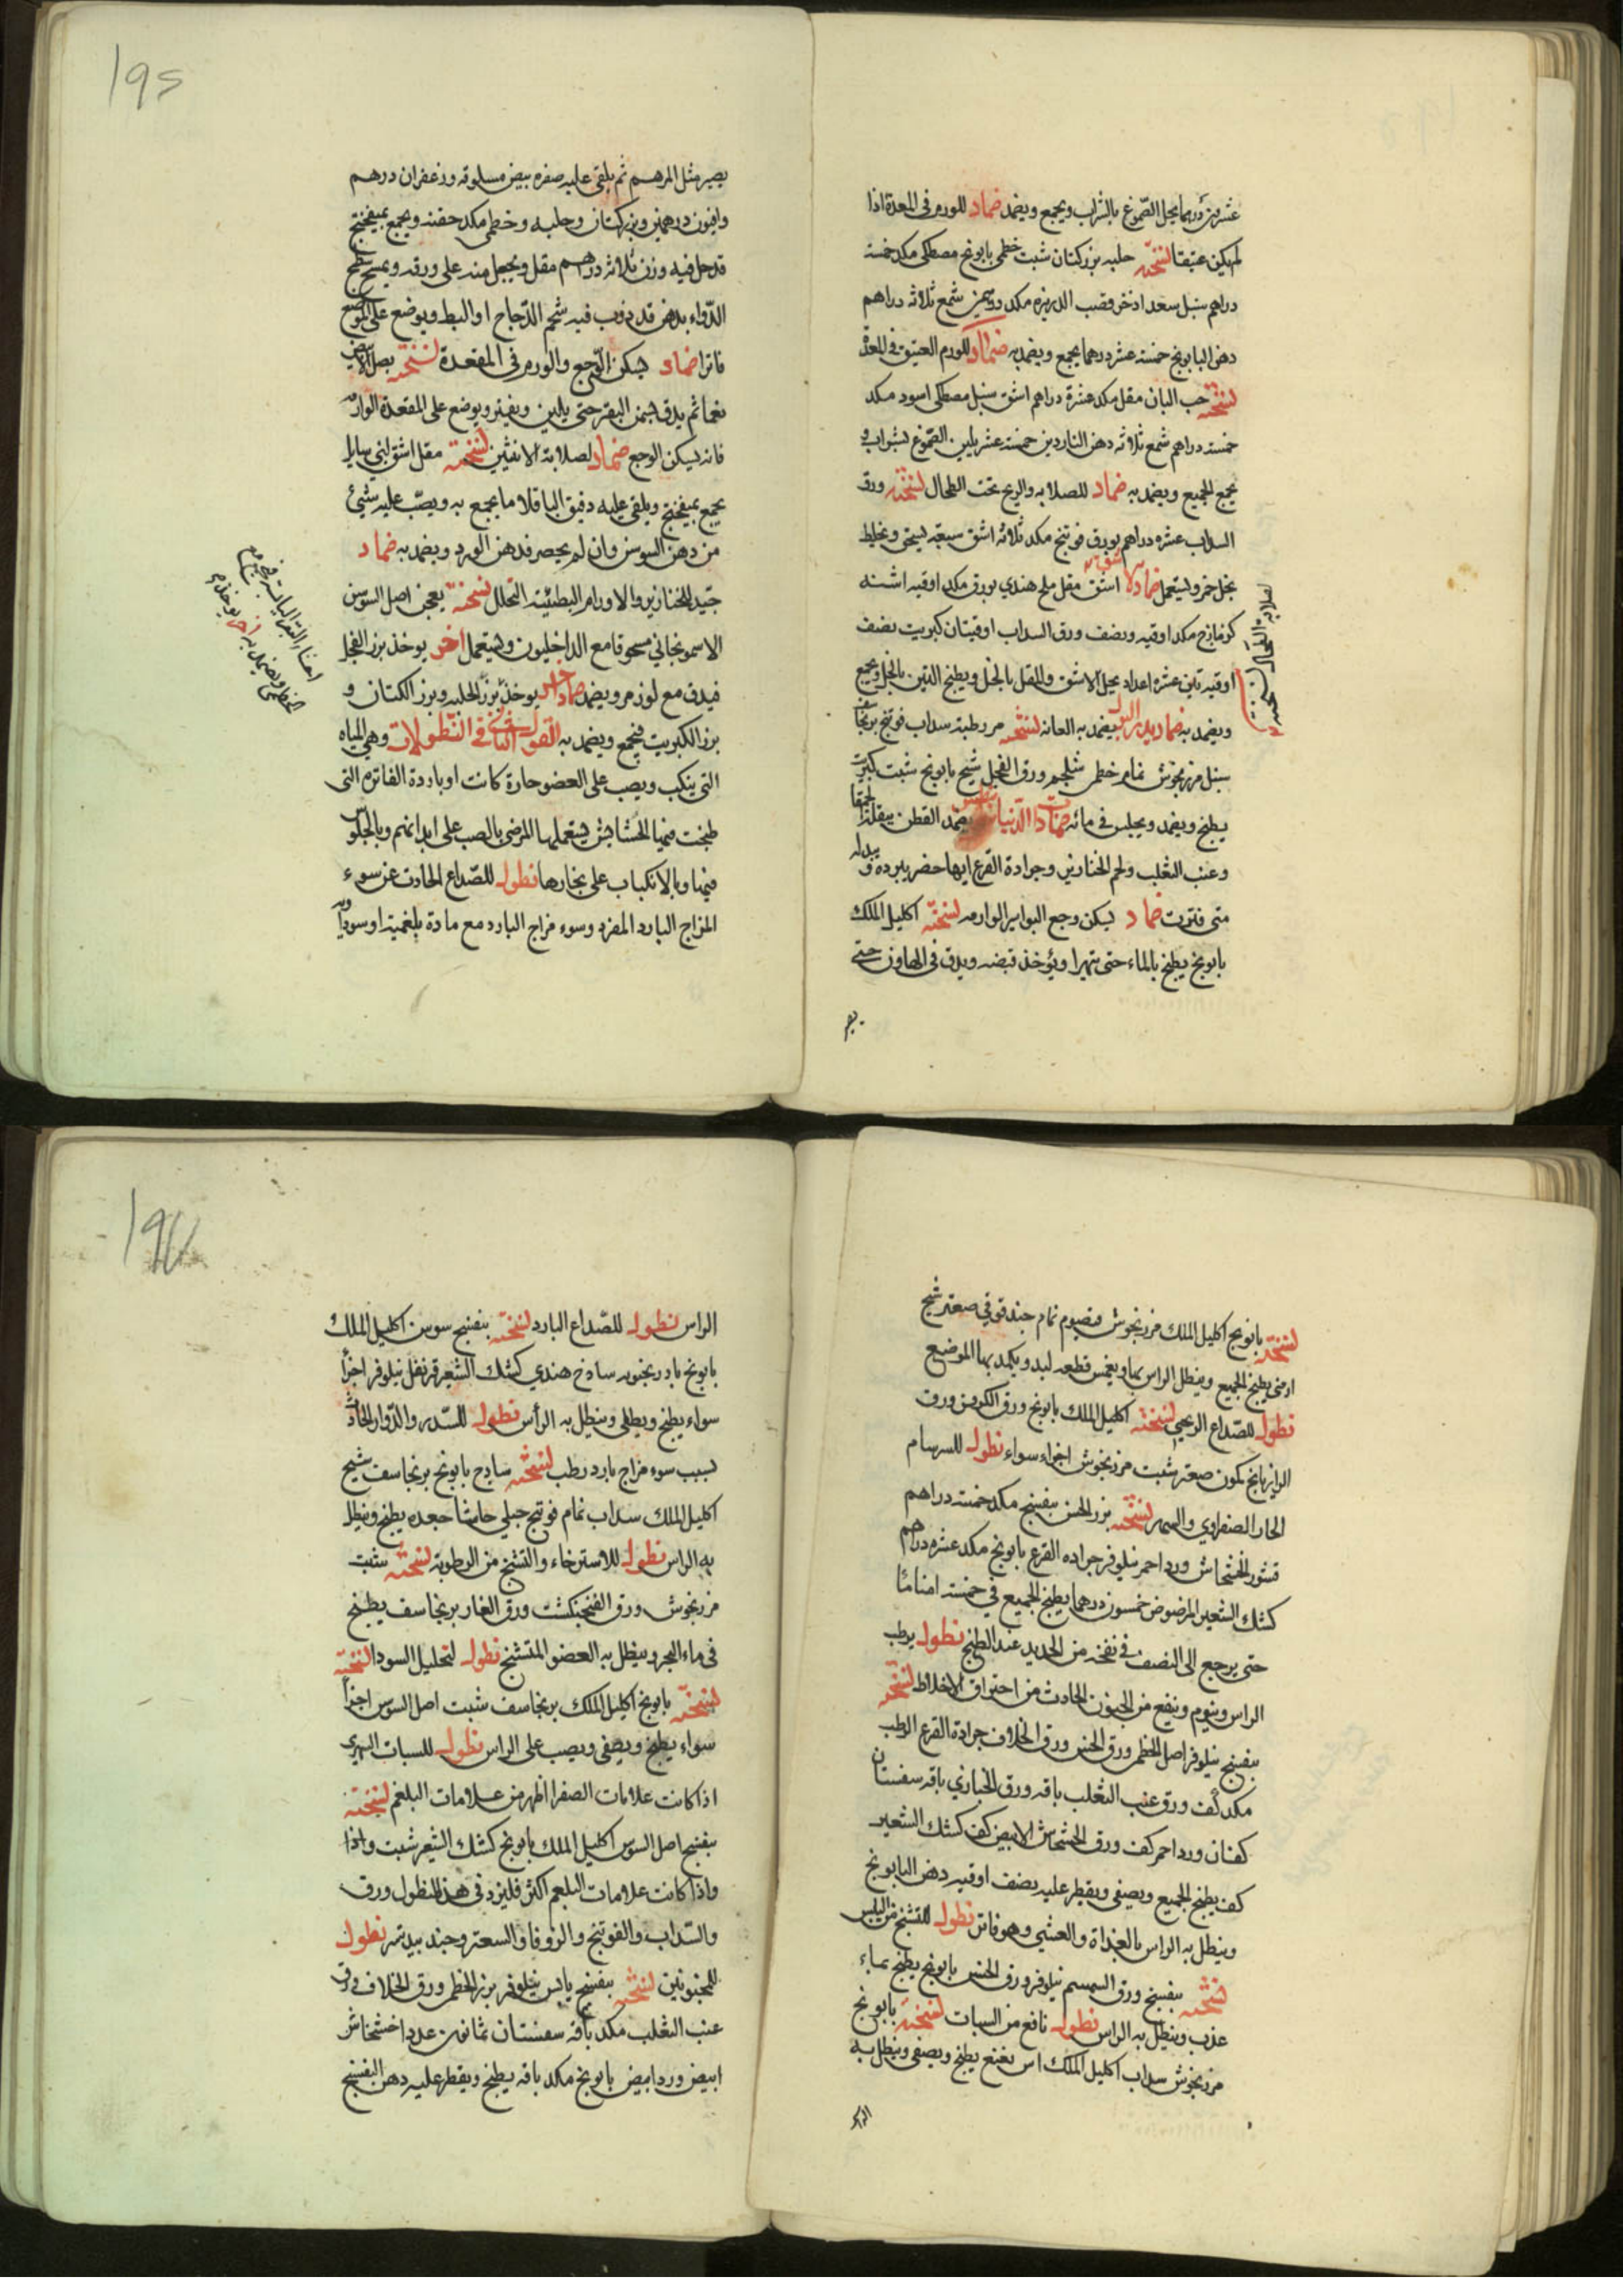 عشرون درهما يحل الصموغ بالشراب ويجمع ويضمد ضماد للورم فى المعدة اذا
لم يكن عتيقا نسخته حلبه بزر كتان شبت خطمى بابونج مصطكى مكد خمسة
دراهم سنبل سعد اذخر وقصب الذريره مكد درهمين شمع ثلاثه دراهم
دهن البابونج خمسة عشر درهما يجمع ويضمد به ضماد للورم العتيق فى المعدة
نسخته حب البان مقل مكد عشرة دراهم اشق سنبل مصطكى اسود مكد
خمسة دراهم شمع ثلاثه دهن الناردين خمسة عشر يلين الصموغ بشراب و
يجمع الجميع ويضمد به ضماد للصلابه والريح تحت الطحال نسخته ورق
السداب عشره دراهم بورق فوتنج مكد ثلاثه اشق سبعة يسحق ويخلط
بخل خمر ويستعمل ضماد اشق مقل ملح هندي بورق مكد اوقيه اشنه
لصلابة الطحال نسخته
كزمازج مكد اوقيه ونصف ورق السداب اوقيتان كبريت نصف
اوقيه تين عشرة اعداد يحل الاشق والمقل بالخل ويطبخ التين بالخل ويجمع
ويضمد به ضماد يدر البول يضمد به العانه نسخته مر رطبة سداب فوتنج برنجاسف
سنبل مرزنجوش نمام خطمى شلجم ورق الفجل شيح بابونج شبت كبريت
يطبخ ويضمد ويجلس فى مائه ضماد يضمد القطن ببقلة الحمقا
وعنب الثعلب ولحم الخنازير وجرادة القرع ايها حضر يبرده و يبدله
متى فترت ضماد يسكن وجع البواسير الوارمه نسخته اكليل الملك
بابونج يطبخ بالماء حتى يتهرا ويؤخذ قبضه ويدق فى الهاون حتى
يصير
195
يصير مثل المرهم ثم يلقى عليه صفره بيض مسلوقه وزعفران درهم
وافيون درهمين وبزر كتان وحلبه وخطمى مكد حفنه ويجمع بميفختج
قد حل فيه وزن ثلاثه دراهم مقل ويجعل منه على ورقه ويمسح سطح
الدواء بدهن قد ذوب فيه شحم الدجاج او البط ويوضع على الموضع
فاترا ضماد يسكن الوجع والورم فى المقعدة نسخته بصل الابيض
نعما ثم يدق بسمن البقر حتى يلين ويفتر ويوضع على المقعدة الوارمه
فانه يسكن الوجع ضماد لصلابة الانثيين نسخته مقل اشق لبنى سايله
يجمع بميفختج ويلقى عليه دقيق الباقلا ما يجمع به ويصب عليه شيئ
من دهن السوسن وان لم يحضر فدهن الورد ويضمد به ضماد
جيد للخنازير والاورام البطيئة التحلل نسخته يعجن اصل السوسن
الاسمونجاني مسحوقا مع الداخليون ويستعمل اخر يوخذ بزر الفجل
فيدق مع لوز مر ويضمد ضماد اخر يوخذ بزر الحلبه وبزر الكتان و
بزر الكبريت فيجمع ويضمد به القول الثانى فى النطولات وهى المياه
التى ينكب ويصب على العضو حارة كانت او باردة الفاتره التى
طبخت فيها الحشايش يستعملها المرضى بالصب على ابدانهم وبالجلوس
فيها وبالانكباب على بخارها نطول للصداع الحادث عن سوء
المزاج البارد المفرد وسوء مزاج البارد مع مادة بلغمية او سوداويه
نسخته بابونج اكليل الملك مرزنجوش قيصوم نمام حندقوقى صعتر شيح
ارمنى يطبخ الجميع وينطل الراس بها ويغمس قطعه لبد ويكمد بها الموضع
نطول للصداع الريحي نسخته اكليل الملك بابونج ورق الكرفس ورق
الرازيانج كمون صعتر شبت مرزنجوش اجزاء سواء نطول للسرسام
الحار الصفراوي والسهر نسخته بزر الخس بنفسج مكد خمسة دراهم
قشور الخشخاش ورد احمر نيلوفر جراده القرع بابونج مكد عشره دراهم
كشك الشعير المرضوض خمسون درهما يطبخ الجميع فى خمسة امنا ماء
حتى يرجع الى النصف عند الطبخ نطول يرطب
الراس وينوم وينفع من الجنون الحادث من احتراق الاخلاط نسخته
بنفسج نيلوفر اصل الخطمى ورق الخس ورق الخلاف جرادة القرع الرطب
مكد كف ورق عنب الثعلب باقه ورق الخبازي باقه سفستان
كفان ورد احمر كف ورق الخشخاش الابيض كف كشك الشعير
كف يطبخ الجميع ويصفى ويقطر عليه نصف اوقيه دهن البابونج
وينطل به الراس بالغداة والعشي وهو فاتر نطول للتشنج من اليبس
نسخته بنفسج ورق السمسم نيلوفر ورق الخس بابونج يطبخ بماء
عذب وينطل به الراس نطول نافع من السبات نسخته بابونج
مرزنجوش سداب اكليل الملك اس نعنع يطبخ ويصفى وينطل به
الراس
الراس نطول للصداع البارد نسخته بنفسج سوسن اكليل الملك
بابونج بادرنجبويه ساذج هندي كشك الشعير قرنفل نيلوفر اجزأ
سواء يطبخ ويطلى وينطل به الرأس نطول للسدر والدوار الحادث
لسبب سوء مزاج بارد رطب نسخته ساذج بابونج برنجاسف شيح
اكليل الملك سداب نمام فوتنج جبلي حاشا جعده يطبخ وينطل
به الراس نطول للاسترخاء والتشنج من الرطوبه نسخته شبت
مرزنجوش ورق الفنجنكشت ورق الغار برنجاسف يطبخ
فى ماء البحر وينطل به العضو المتشنج نطول لتحليل السودا نسخته
نسخته بابونج اكليل الملك برنجاسف شبت اصل السوس اجزأ
سواء يطبخ ويصفى ويصب على الراس نطول للسبات السهرى
اذا كانت علامات الصفرا اظهر من علامات البلغم نسخته
بنفسج اصل السوس اكليل الملك بابونج كشك الشعير شبت واذا
واذا كانت علامات البلغم اكثر فليزد فى هذا النطول ورق
والسداب والفوتنج والزوفا والسعتر وجندبيدستر نطول
للمجنونين نسخته بنفسج يابس نيلوفر بزر الخطمى ورق الخلاف ورق
عنب الثعلب مكد باقه سفستان ثمانون عددا خشخاش
ابيض ورد ابيض بابونج مكد باقه يطبخ ويقطر عليه دهن البنفسج